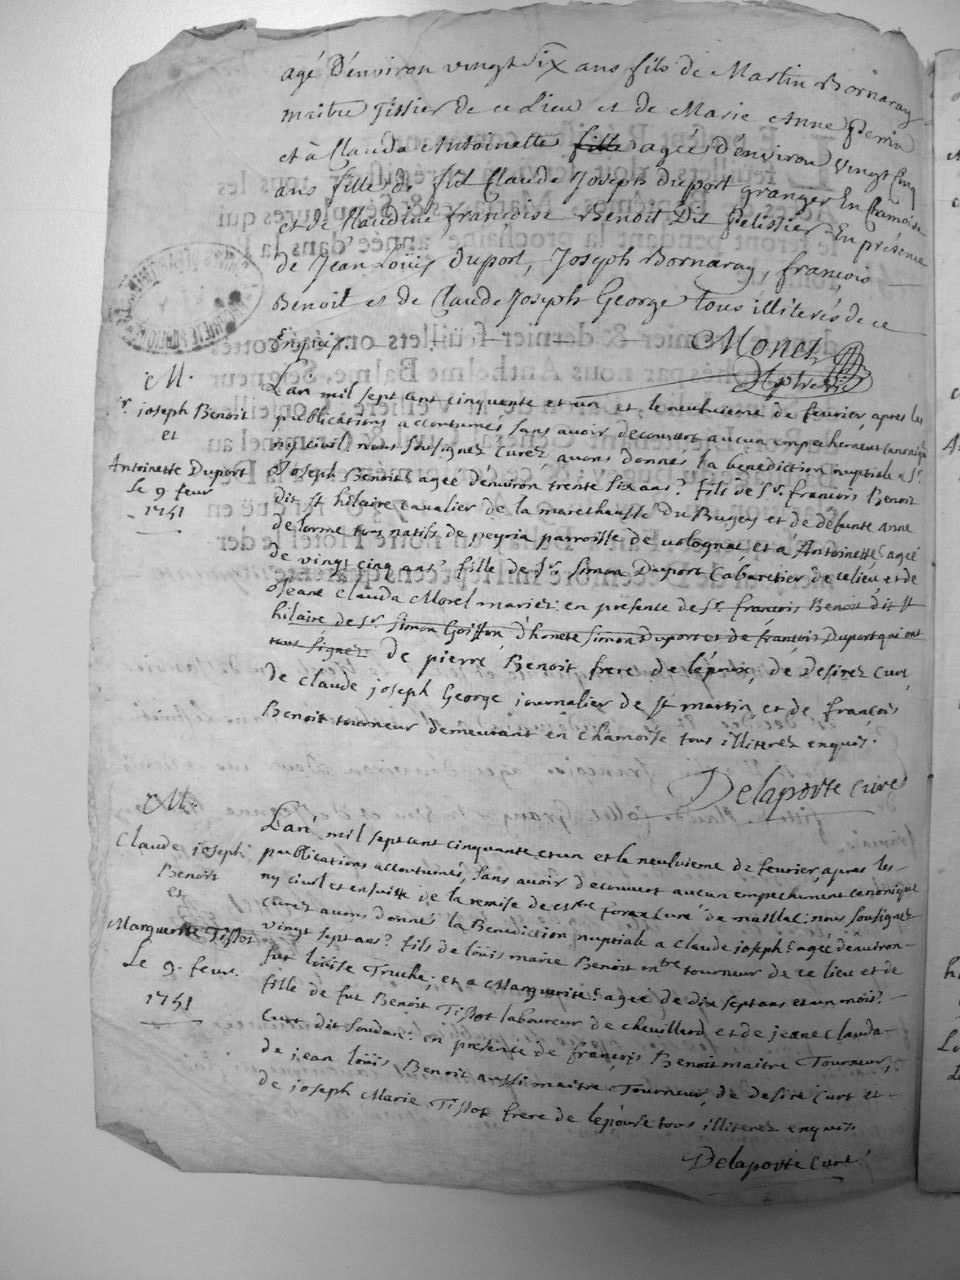 agé D'environ vingt six ans fils de Martin Bornaray
maitre Tissier de ce Lieu et de Marie Anne Perrin
et à Claudа Antoinette fille agée D'environ vingt cinq
ans fille de feu Claude Joseph Duport granger En chamoise
et de Claudine françoise Benoit Dit pelissier En présence
de Jean Loüis Duport, Joseph Bornaray, francois
Benoit et de Claude Joseph George tous illiterés de ce
Enquis.
Monet
M.
Sr. joseph Benoit
et
Antoinette Duport
Le 9 fevr
1751
L'an mil sept cent cinquante et un et le neuvieme de fevrier, apres les
publications accoutumés sans avoir decouvert aucun empechement canonique
ny civil nous soussignez curez avons donnés la benediction nuptiale a Sr.
Joseph Benoit agée d'environ trente six ans? fils de Sr. francois Benoit
dit St hilaire cavalier de la marechaussée Du Bugey et de defunte anne
de lorme tous natifs de peyria parroisse de volognat et a Antoinette agée
de vingt cinq ans? fille de Sr. Simon Duport Cabaretier de ce lieu et de
Jeane Claudа Morel mariez: en presence de Sr. françois Benoit dit St
hilaire de Sr. Simon Goiffon d'honete simon Duport et de francois Duport qui ont
tous signez: de pierre Benoit frere de l'epoux, de Desirez Curt,
de Claude joseph George journalier de St martin et de françois
Benoit tourneur demeurant en chamoise tous illiterez enquis.
Delaporte curé
M.
Claude joseph
Benoit
et
Marguerite Tissot
Le 9. fevr.
1751
L'an mil sept cent cinquante et un et le neuvieme de fevrier, apres les
publications accoutumés, sans avoir decouvert aucun empechement canonique
ny civil et ensuitte de la remise de curé de maillat: nous soussignez
Curez avons donnés la Benediction nuptiale a Claude joseph agée d'environ
vingt sept ans? fils de Loüis marie Benoit mtre tourneur de ce lieu et de
fut Loüise Truche; et a Marguerite agée de dix sept ans et un mois?
fille de fut Benoit Tissot laboureur de chevillard et de jeane Claudа
Curt dit Soudan: en presence de françois Benoit maitre Tourneur,
de jean Loüis Benoit aussi maitre Tourneur, de desiré Curt et
de joseph Marie Tissot frere de lepouse tous illiterez enquis.
Delaporte curé